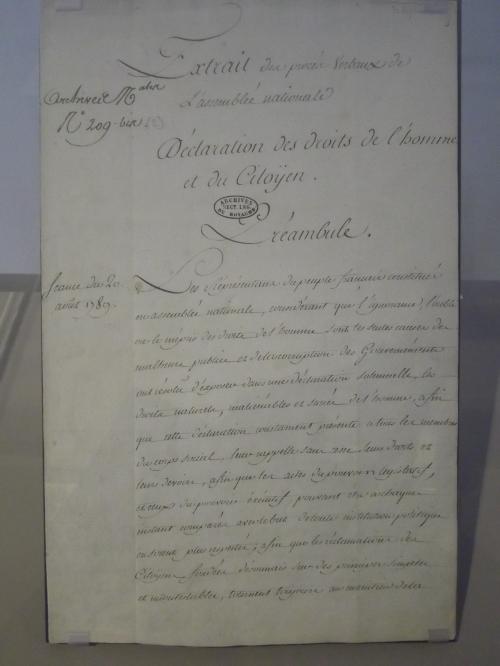 Extrait des procès Verbaux de
L'assemblée nationale
archives Nales
N° 209-bis
Déclaration des droits de l'homme
et du Citoÿen.
ARCHIVES
SECT. LEG.
DU ROYAUME
Préambule.
Séance du 20
août 1789.
Les Représentans du peuple français constitués
en assemblée nationale, considérant que l'ignorance, l'oubli
ou le mépris des droits de l'homme sont les seules causes des
malheurs publics et de la corruption des Gouvernements
ont résolu d'exposer dans une déclaration solemnelle, les
droits naturels, inaliénables et sacrés de l'homme, afin
que cette déclaration constament présente à tous les membres
du corps social, leur rappelle sans cesse leurs droits et
leurs devoirs, afin que les actes du pouvoir législatif,
et ceux du pouvoir éxécutif, pouvant être à chaque
instant comparés avec le but de toute institution politique
en soient plus respectés; afin que les réclamations des
Citoÿens, fondées désormais sur des principes simples
et incontestables, tournent toujours au maintien de la